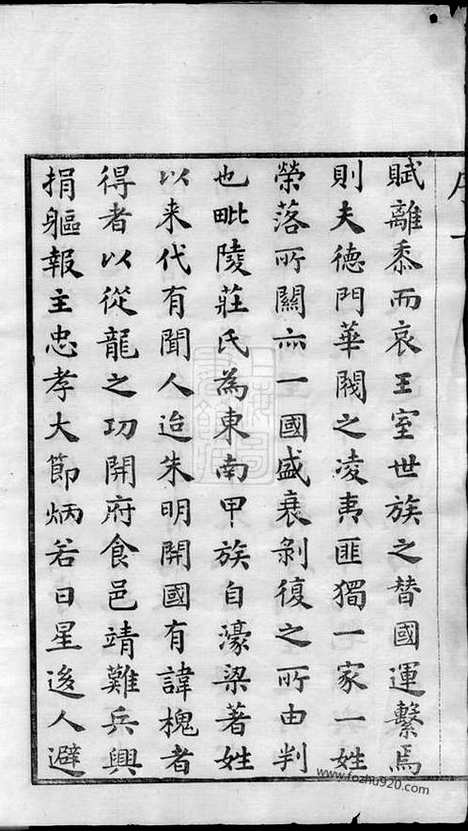 賦離黍而哀王室世族之替國運繫焉
則夫德門華閥之凌夷匪獨一家一姓
榮落所關亦一國盛衰剝復之所由判
也毗陵莊氏為東南甲族自濠梁著姓
以来代有聞人迨朱明開國有諱槐者
得者以從龍之功開府食邑靖難兵興
捐軀報主忠孝大節炳若日星後人避
www.fozhu920.com